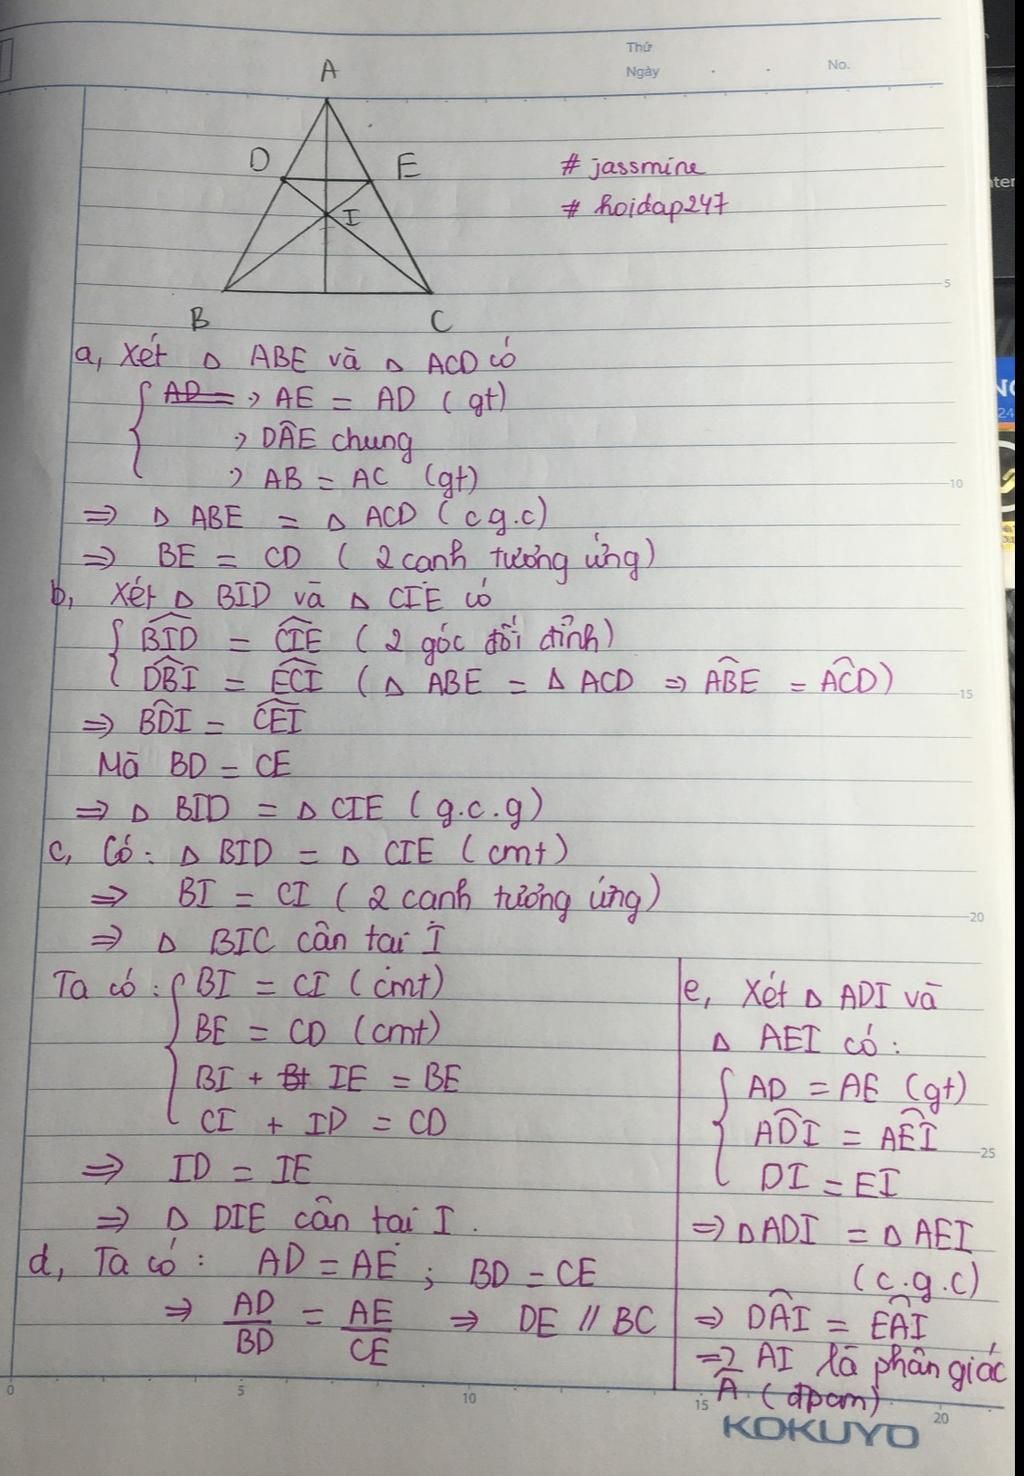 Thứ
Ngày . . No.
A
D E
# jassmine
# hoidap247
I
B C
5
a, Xét Δ ABE và Δ ACD có
AD = , AE = AD (gt)
, DÂE chung
, AB = AC (gt)
10
⇒ Δ ABE = Δ ACD (c.g.c)
⇒ BE = CD (2 cạnh tương ứng)
b, Xét Δ BID và Δ CIE có
BID̂ = CIÊ (2 góc đối đỉnh)
DB̂I = EĈI (Δ ABE = Δ ACD ⇒ AB̂E = AĈD)
15
⇒ BD̂I = CÊI
Mà BD = CE
⇒ Δ BID = Δ CIE (g.c.g)
c, Có: Δ BID = Δ CIE (cmt)
⇒ BI = CI (2 cạnh tương ứng)
20
⇒ Δ BIC cân tại I
Ta có: BI = CI (cmt)
BE = CD (cmt)
BI + IE = BE
CI + ID = CD
⇒ ID = IE
⇒ Δ DIE cân tại I.
d, Ta có: AD = AE ; BD = CE
⇒ AD/BD = AE/CE ⇒ DE // BC
e, Xét Δ ADI và
Δ AEI có:
AD = AE (gt)
AD̂I = AÊI
25
DI = EI
⇒ Δ ADI = Δ AEI
(c.g.c)
⇒ DÂI = EÂI
⇒ AI là phân giác
Â (đpcm)
0 5 10 15 20
KOKUYO